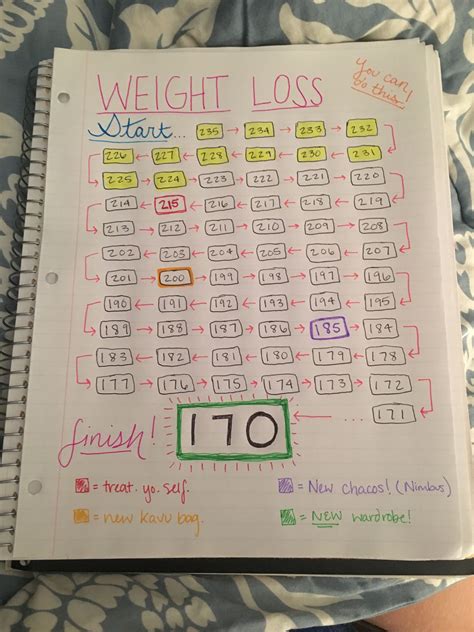 WEIGHT LOSS
You can
do this!
Start... 235 → 234 → 233 → 232
226 ← 227 ← 228 ← 229 ← 230 ← 231
225 → 224 → 223 → 222 → 221 → 220
214 ← 215 ← 216 ← 217 ← 218 ← 219
213 → 212 → 211 → 210 → 209 → 208
202 ← 203 ← 204 ← 205 ← 206 ← 207
201 → 200 → 199 → 198 → 197 → 196
190 ← 191 ← 192 ← 193 ← 194 ← 195
189 → 188 → 187 → 186 → 185 → 184
183 ← 182 ← 181 ← 180 ← 179 ← 178
177 → 176 → 175 → 174 → 173 → 172
... 171
finish! 170
= treat. yo. self.
= New chacos! (Nimbus)
= new kavu bag.
= NEW wardrobe!